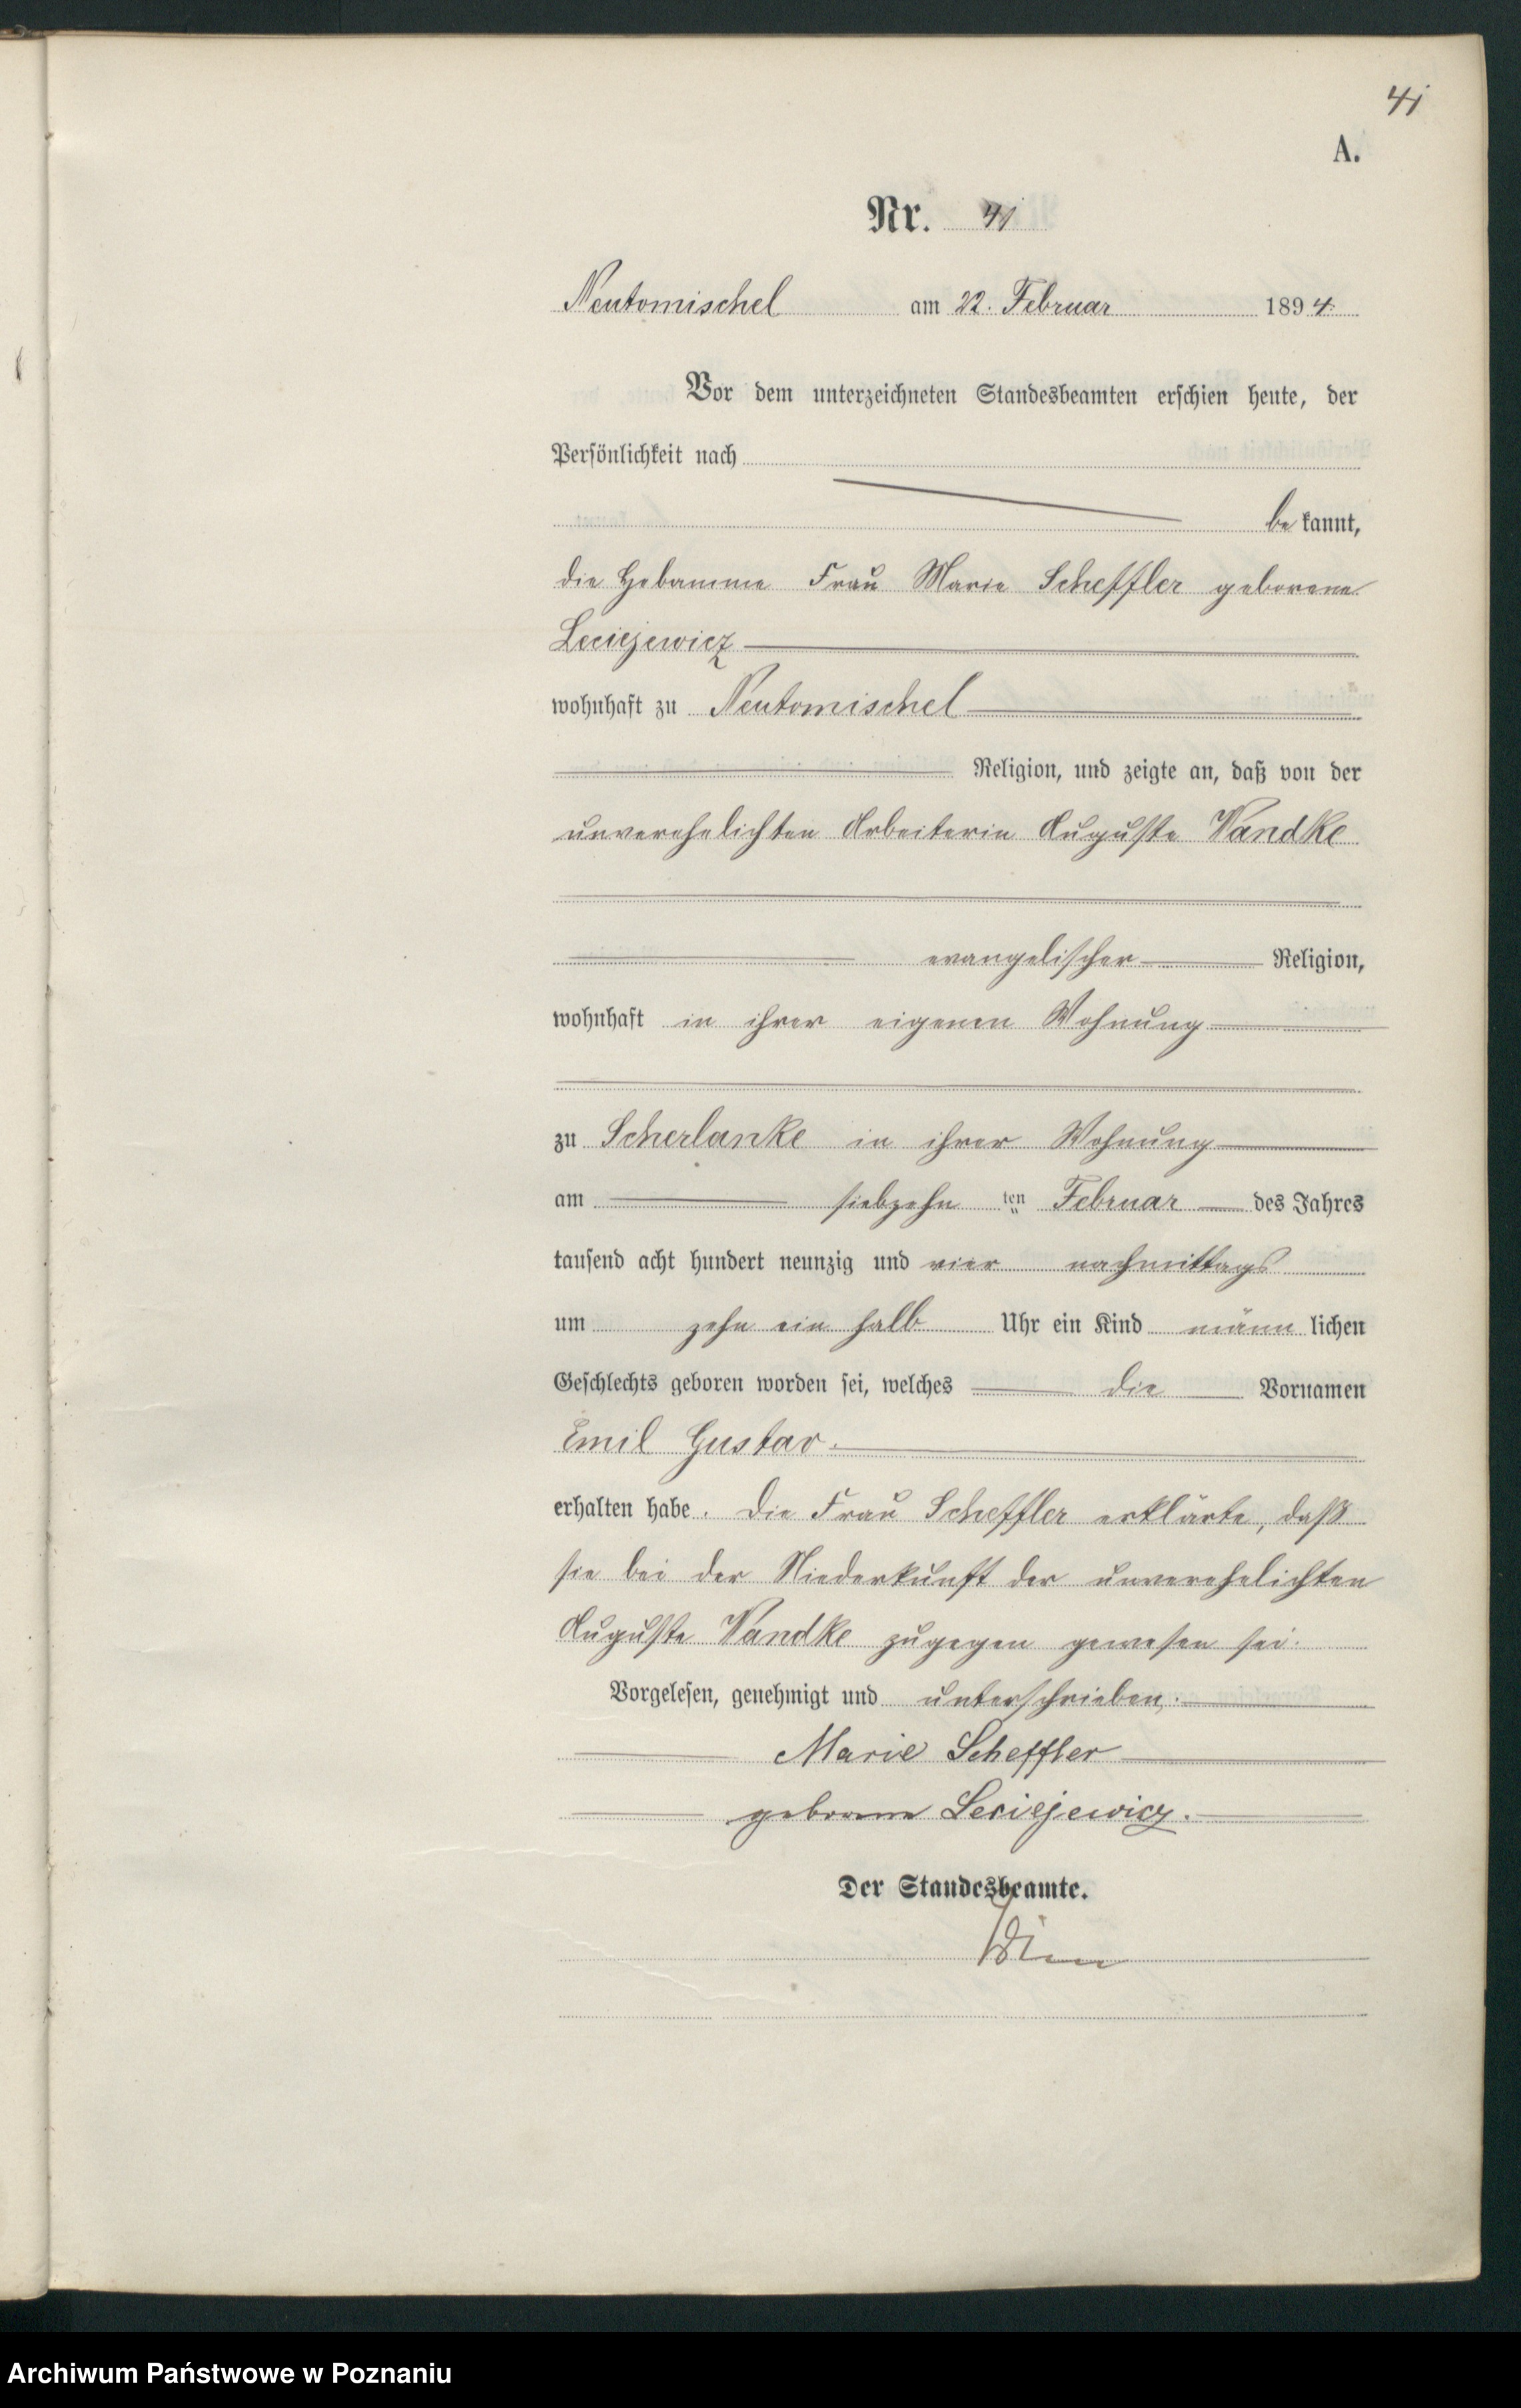 41
A.
Nr. 41
Neutomischel am 22. Februar 1894.
Vor dem unterzeichneten Standesbeamten erschien heute, der
Persönlichkeit nach
be kannt,
die Hebamme Frau Marie Scheffler geborene
Leciejewicz
wohnhaft zu Neutomischel
Religion, und zeigte an, daß von der
unverehelichten Arbeiterin Auguste Wandke
evangelischer Religion,
wohnhaft in ihrer eigenen Wohnung
zu Scherlanke in ihrer Wohnung
am siebzehn ten Februar des Jahres
tausend acht hundert neunzig und vier nachmittags
um zehn ein halb Uhr ein Kind männ lichen
Geschlechts geboren worden sei, welches die Vornamen
Emil Gustav.
erhalten habe. Die Frau Scheffler erklärte, daß
sie bei der Niederkunft der unverehelichten
Auguste Wandke zugegen gewesen sei.
Vorgelesen, genehmigt und unterschrieben.
Marie Scheffler
geborene Leciejewicz.
Der Standesbeamte.
Archiwum Państwowe w Poznaniu